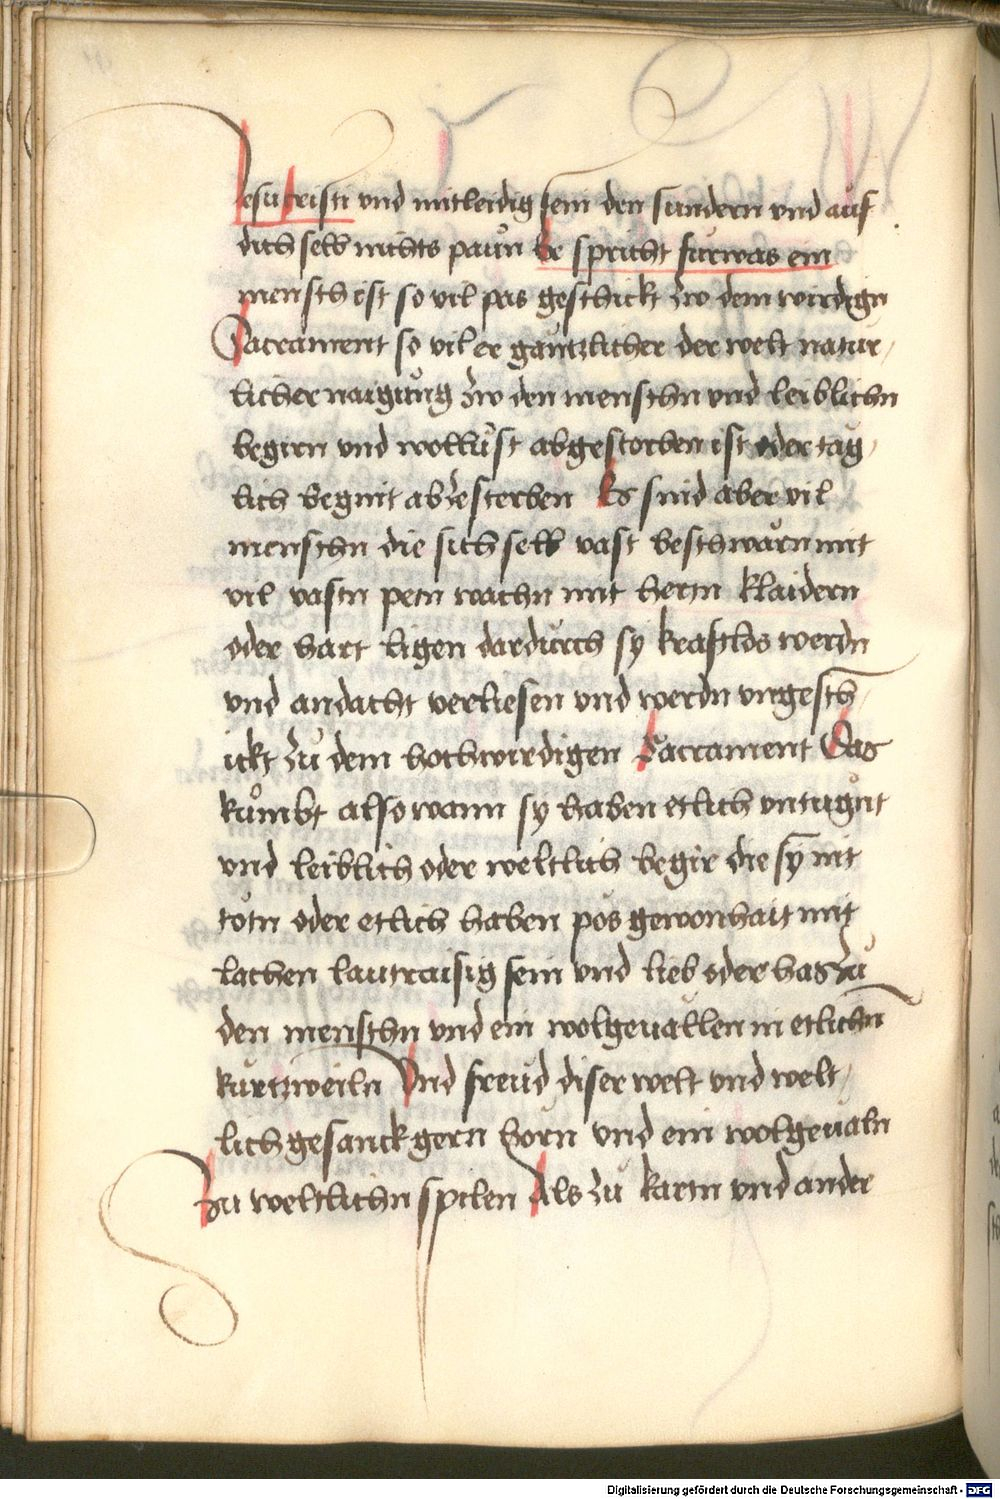 Jesu cristi vnd mitleidig sein den sundern vnd auf
dich selb nichts pawn Er spricht furwas ein
mensch ist so vil pas geschickt zw dem wirdign
Sacrament so vil er gäntzlicher der welt natur
licher naigung zw den menschn vnd leiblichn
begirn vnd wollust abgestorben ist oder täg
lich begint abzesterben Es sind aber vil
menschn die sich selb vast beschwärn mit
vil vastn petn wachn mit hertn klaidern
oder hart ligen dardurch sy kraftlos werdn
vnd andacht verliesen vnd werdn vngesch
ickt zu dem hochwirdigen Sacrament Das
kumbt also wann sy haben etlich vntugnt
vnd leiblich oder weltlich begir die sy nit
tötn oder etlich haben pös gewonhait mit
lachen lautraisig sein vnd lieb oder has zu
den menschn vnd ein wolgeuallen in etlichn
kurtzweiln Vnd freud diser welt vnd welt
lich gesanck gern hörn vnd ein wolgeualn
zu weltlichn spilen Als zu kartn vnd ander
Digitalisierung gefördert durch die Deutsche Forschungsgemeinschaft - DFG